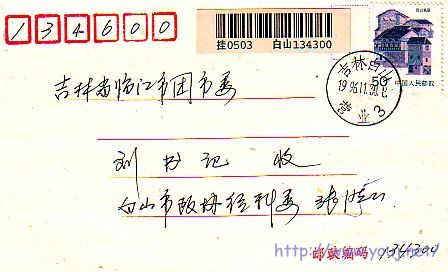 134600
挂0503 白山134300
50
中国人民邮政
吉林白山
1996.11.30
营业
3
吉林省临江市团市委
刘书记 收
白山市政协经科委
邮政编码 134300